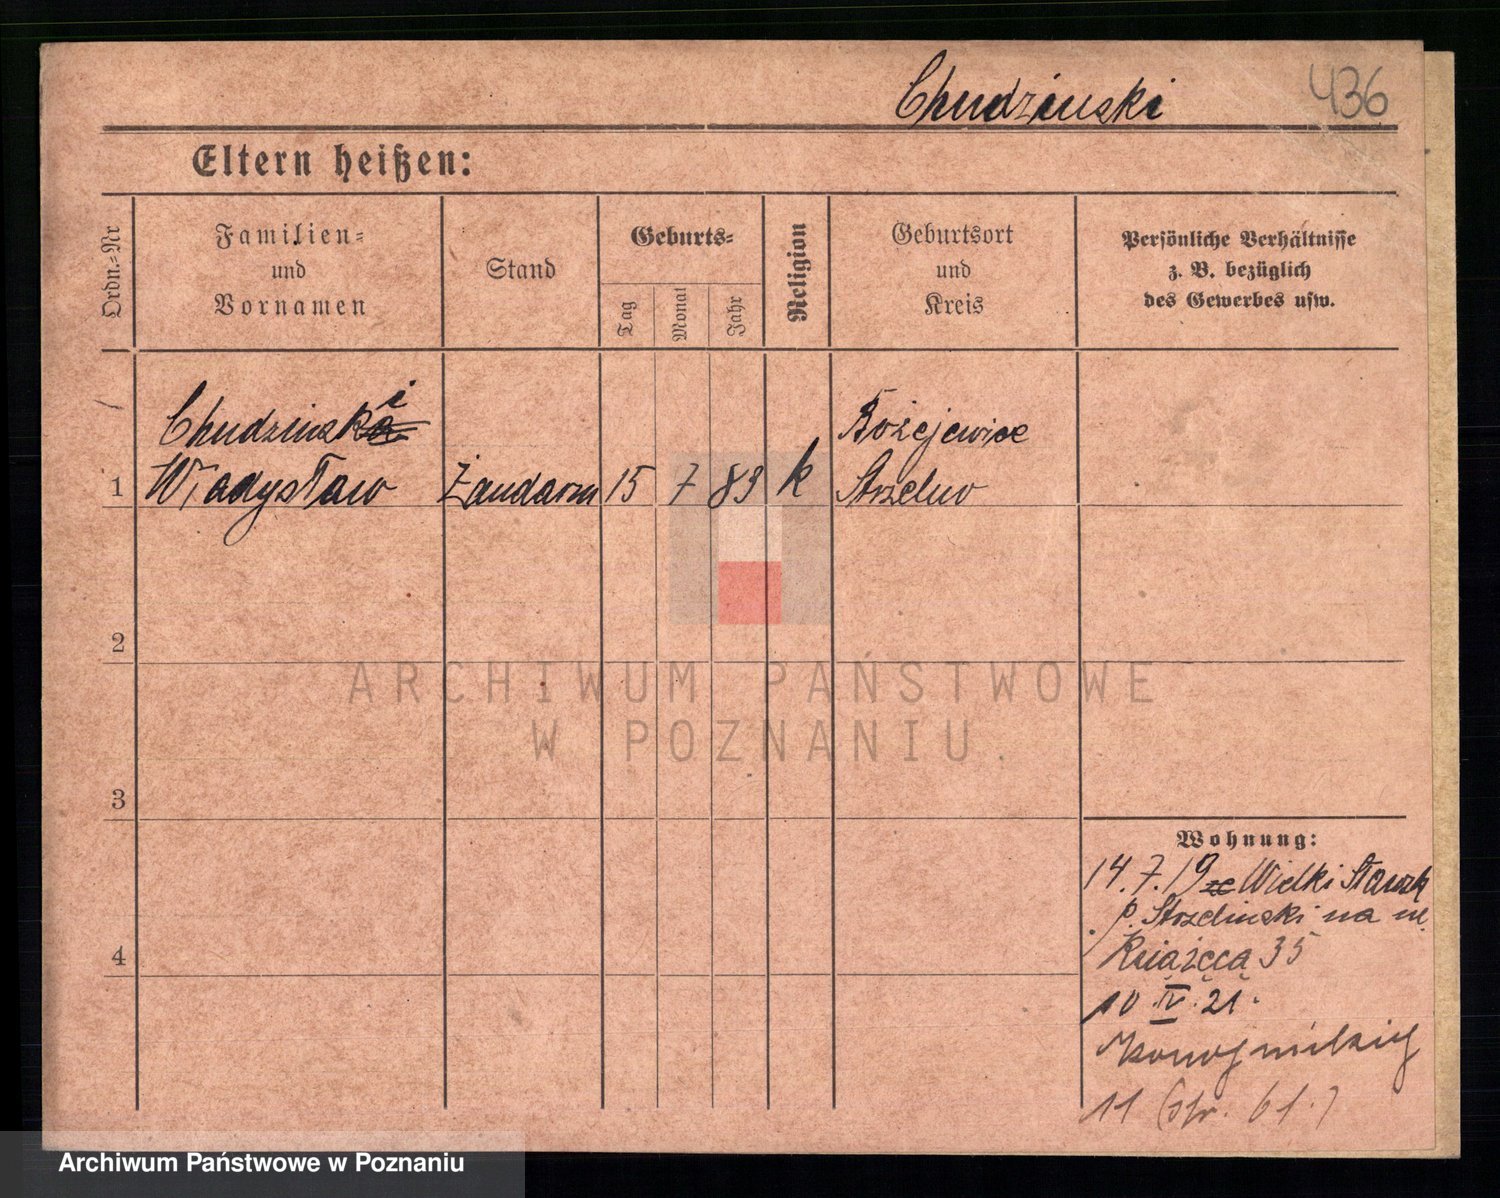 Chudzinski
436
Eltern heißen:
Ordn.-Nr
Familien-
und
Vornamen
Stand
Geburts-
Tag
Monat
Jahr
Religion
Geburtsort
und
Kreis
Persönliche Verhältnisse
z. B. bezüglich
des Gewerbes usw.
Chudzinski
1 Władysław Żandarm 15 7 83 k
Bożejewice
Strzelno
2
3
4
ARCHIWUM PAŃSTWOWE
W POZNANIU.
Wohnung:
14.7.19 ze Wielki
p. Strzelinski na
Książęcą 35
10 IV. 21.
11 (str. 61.)
Archiwum Państwowe w Poznaniu